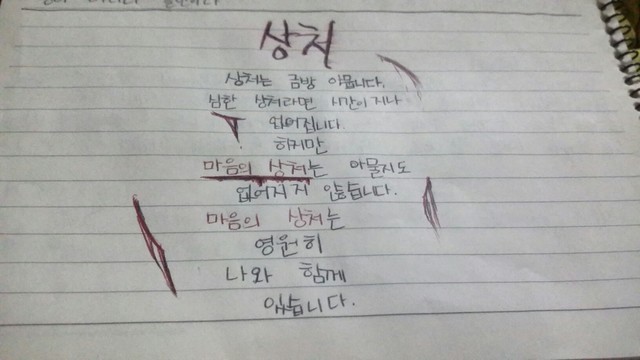 상처
상처는 금방 아뭅니다.
심한 상처라면 시간이 지나
없어집니다.
하지만
마음의 상처는 아물지도
없어지지 않습니다.
마음의 상처는
영원히
나와 함께
있습니다.